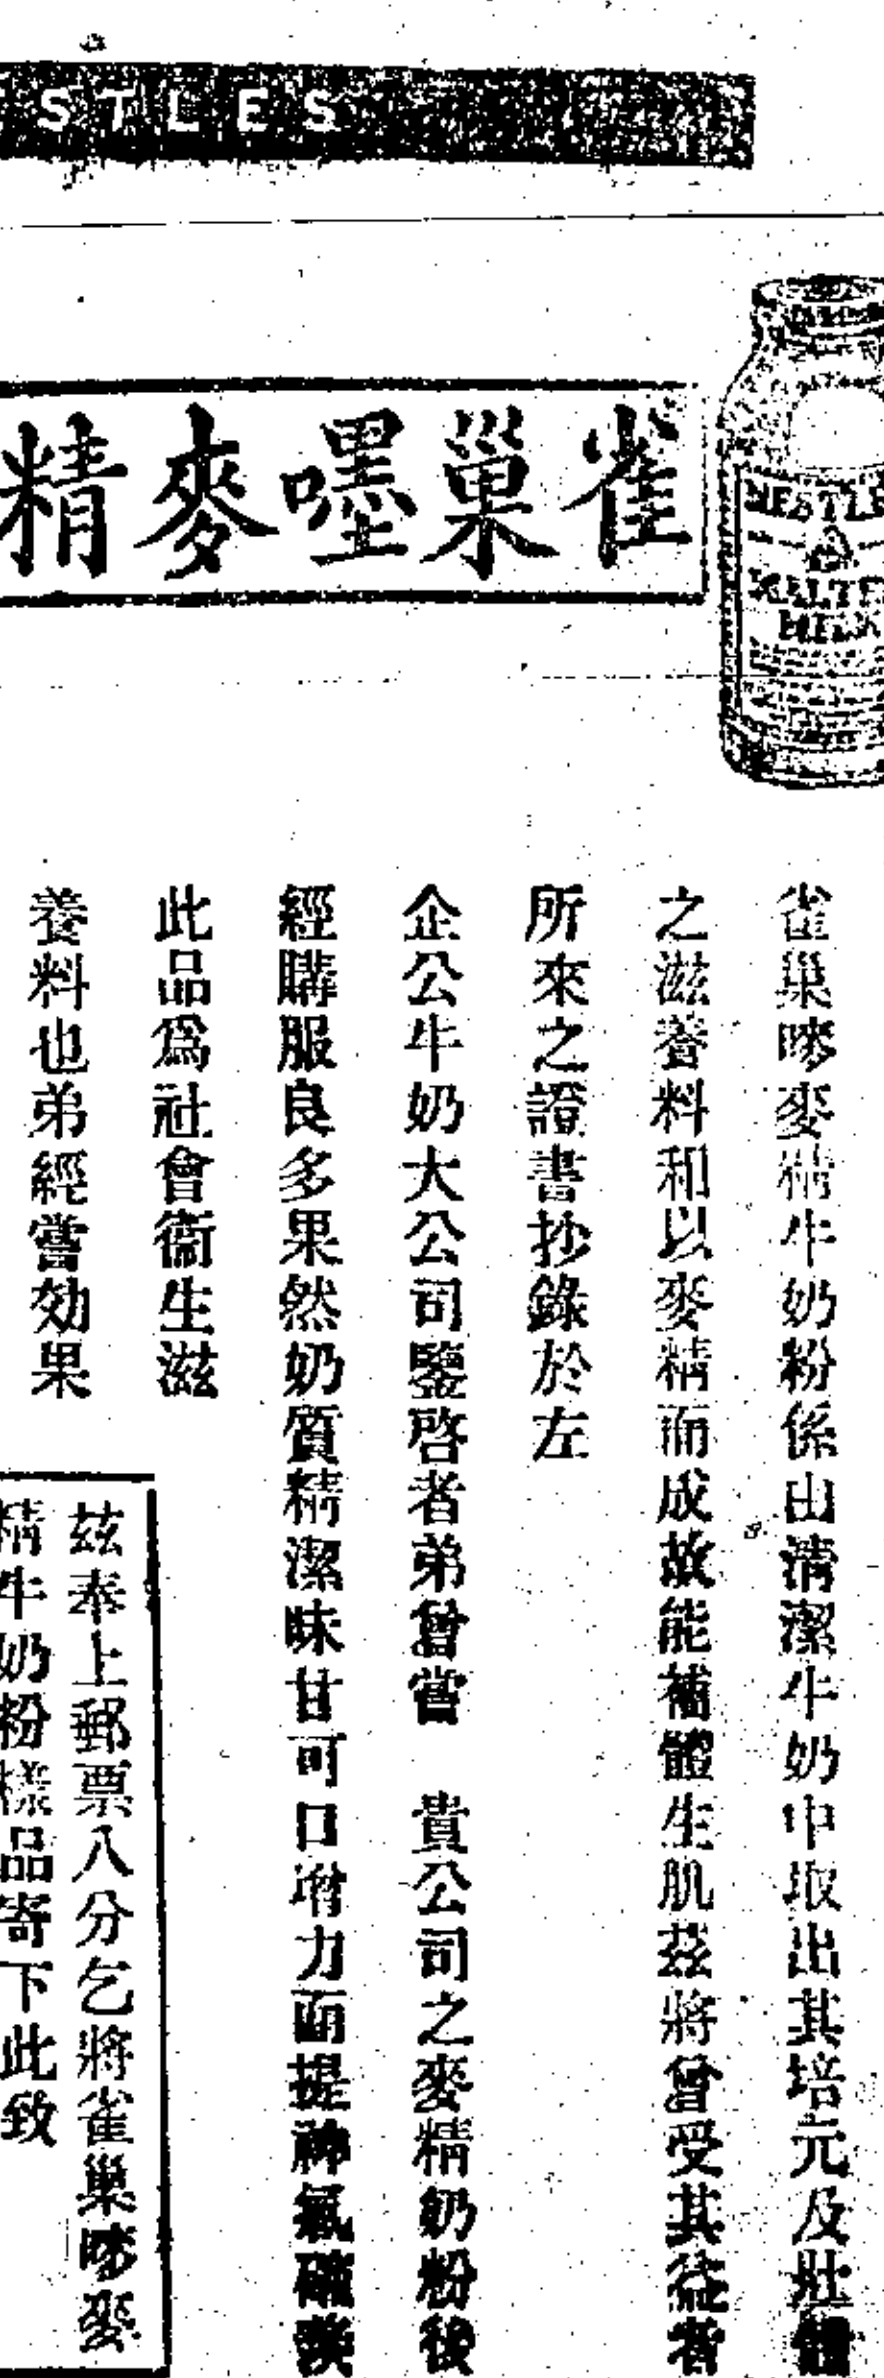 STLES
雀巢嘿麥精
NESTLE
MALTE
MILK
雀巢嚜麥精牛奶粉係由清潔牛奶中取出其培元及壯體
之滋養料和以麥精而成故能補體生肌茲將曾受其益者
所來之證書抄錄於左
企公牛奶大公司鑒啓者弟曾嘗 貴公司之麥精奶粉後
經購服良多果然奶質精潔味甘可口增力而提神氣確
此品爲社會衞生滋
養料也弟經嘗効果
茲奉上郵票八分乞將雀巢麥
精牛奶粉樣品寄下此致